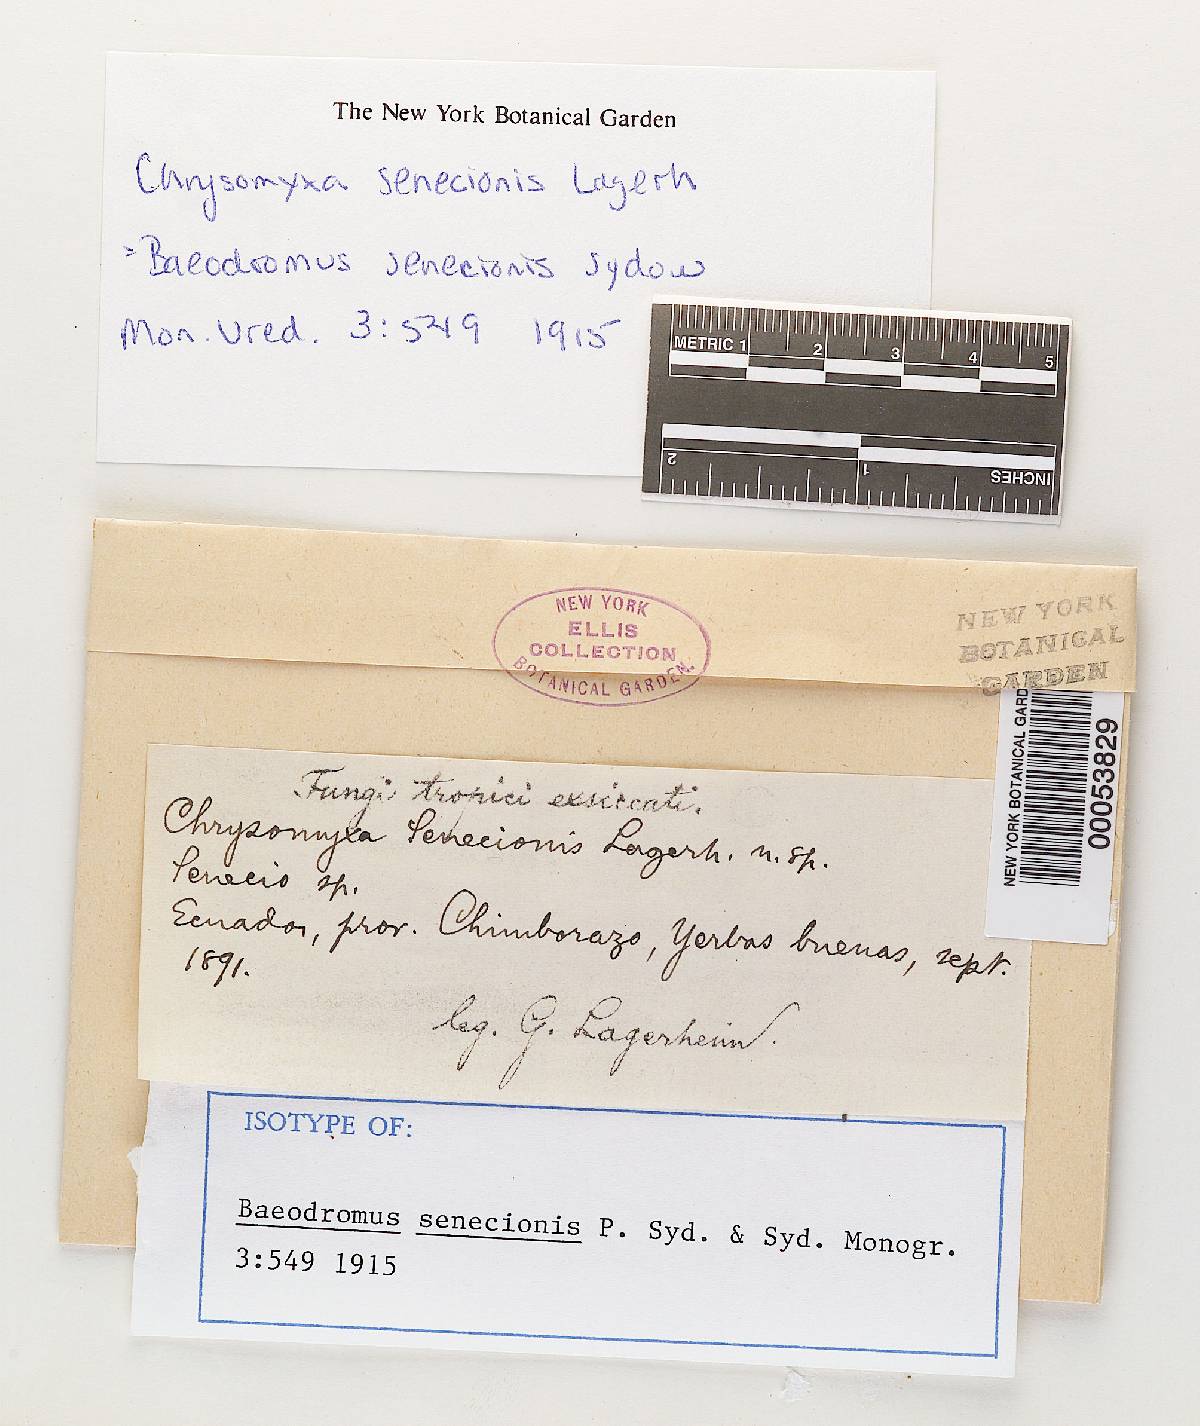 The New York Botanical Garden
Chrysomyxa senecionis Lagerh
=Baeodromus senecionis Sydow
Mon. Ured. 3:549 1915
METRIC 1 2 3 4 5
2 1 INCHES
NEW YORK
ELLIS
COLLECTION
BOTANICAL GARDEN
NEW YORK
BOTANICAL
GARDEN
NEW YORK BOTANICAL GARD
00053829
Fungi tropici exsiccati.
Chrysomyxa Senecionis Lagerh. n. sp.
Senecio sp.
Ecuador, prov. Chimborazo, Yerbas buenas, sept.
1891.
leg. G. Lagerheim.
ISOTYPE OF:
Baeodromus senecionis P. Syd. & Syd. Monogr.
3:549 1915